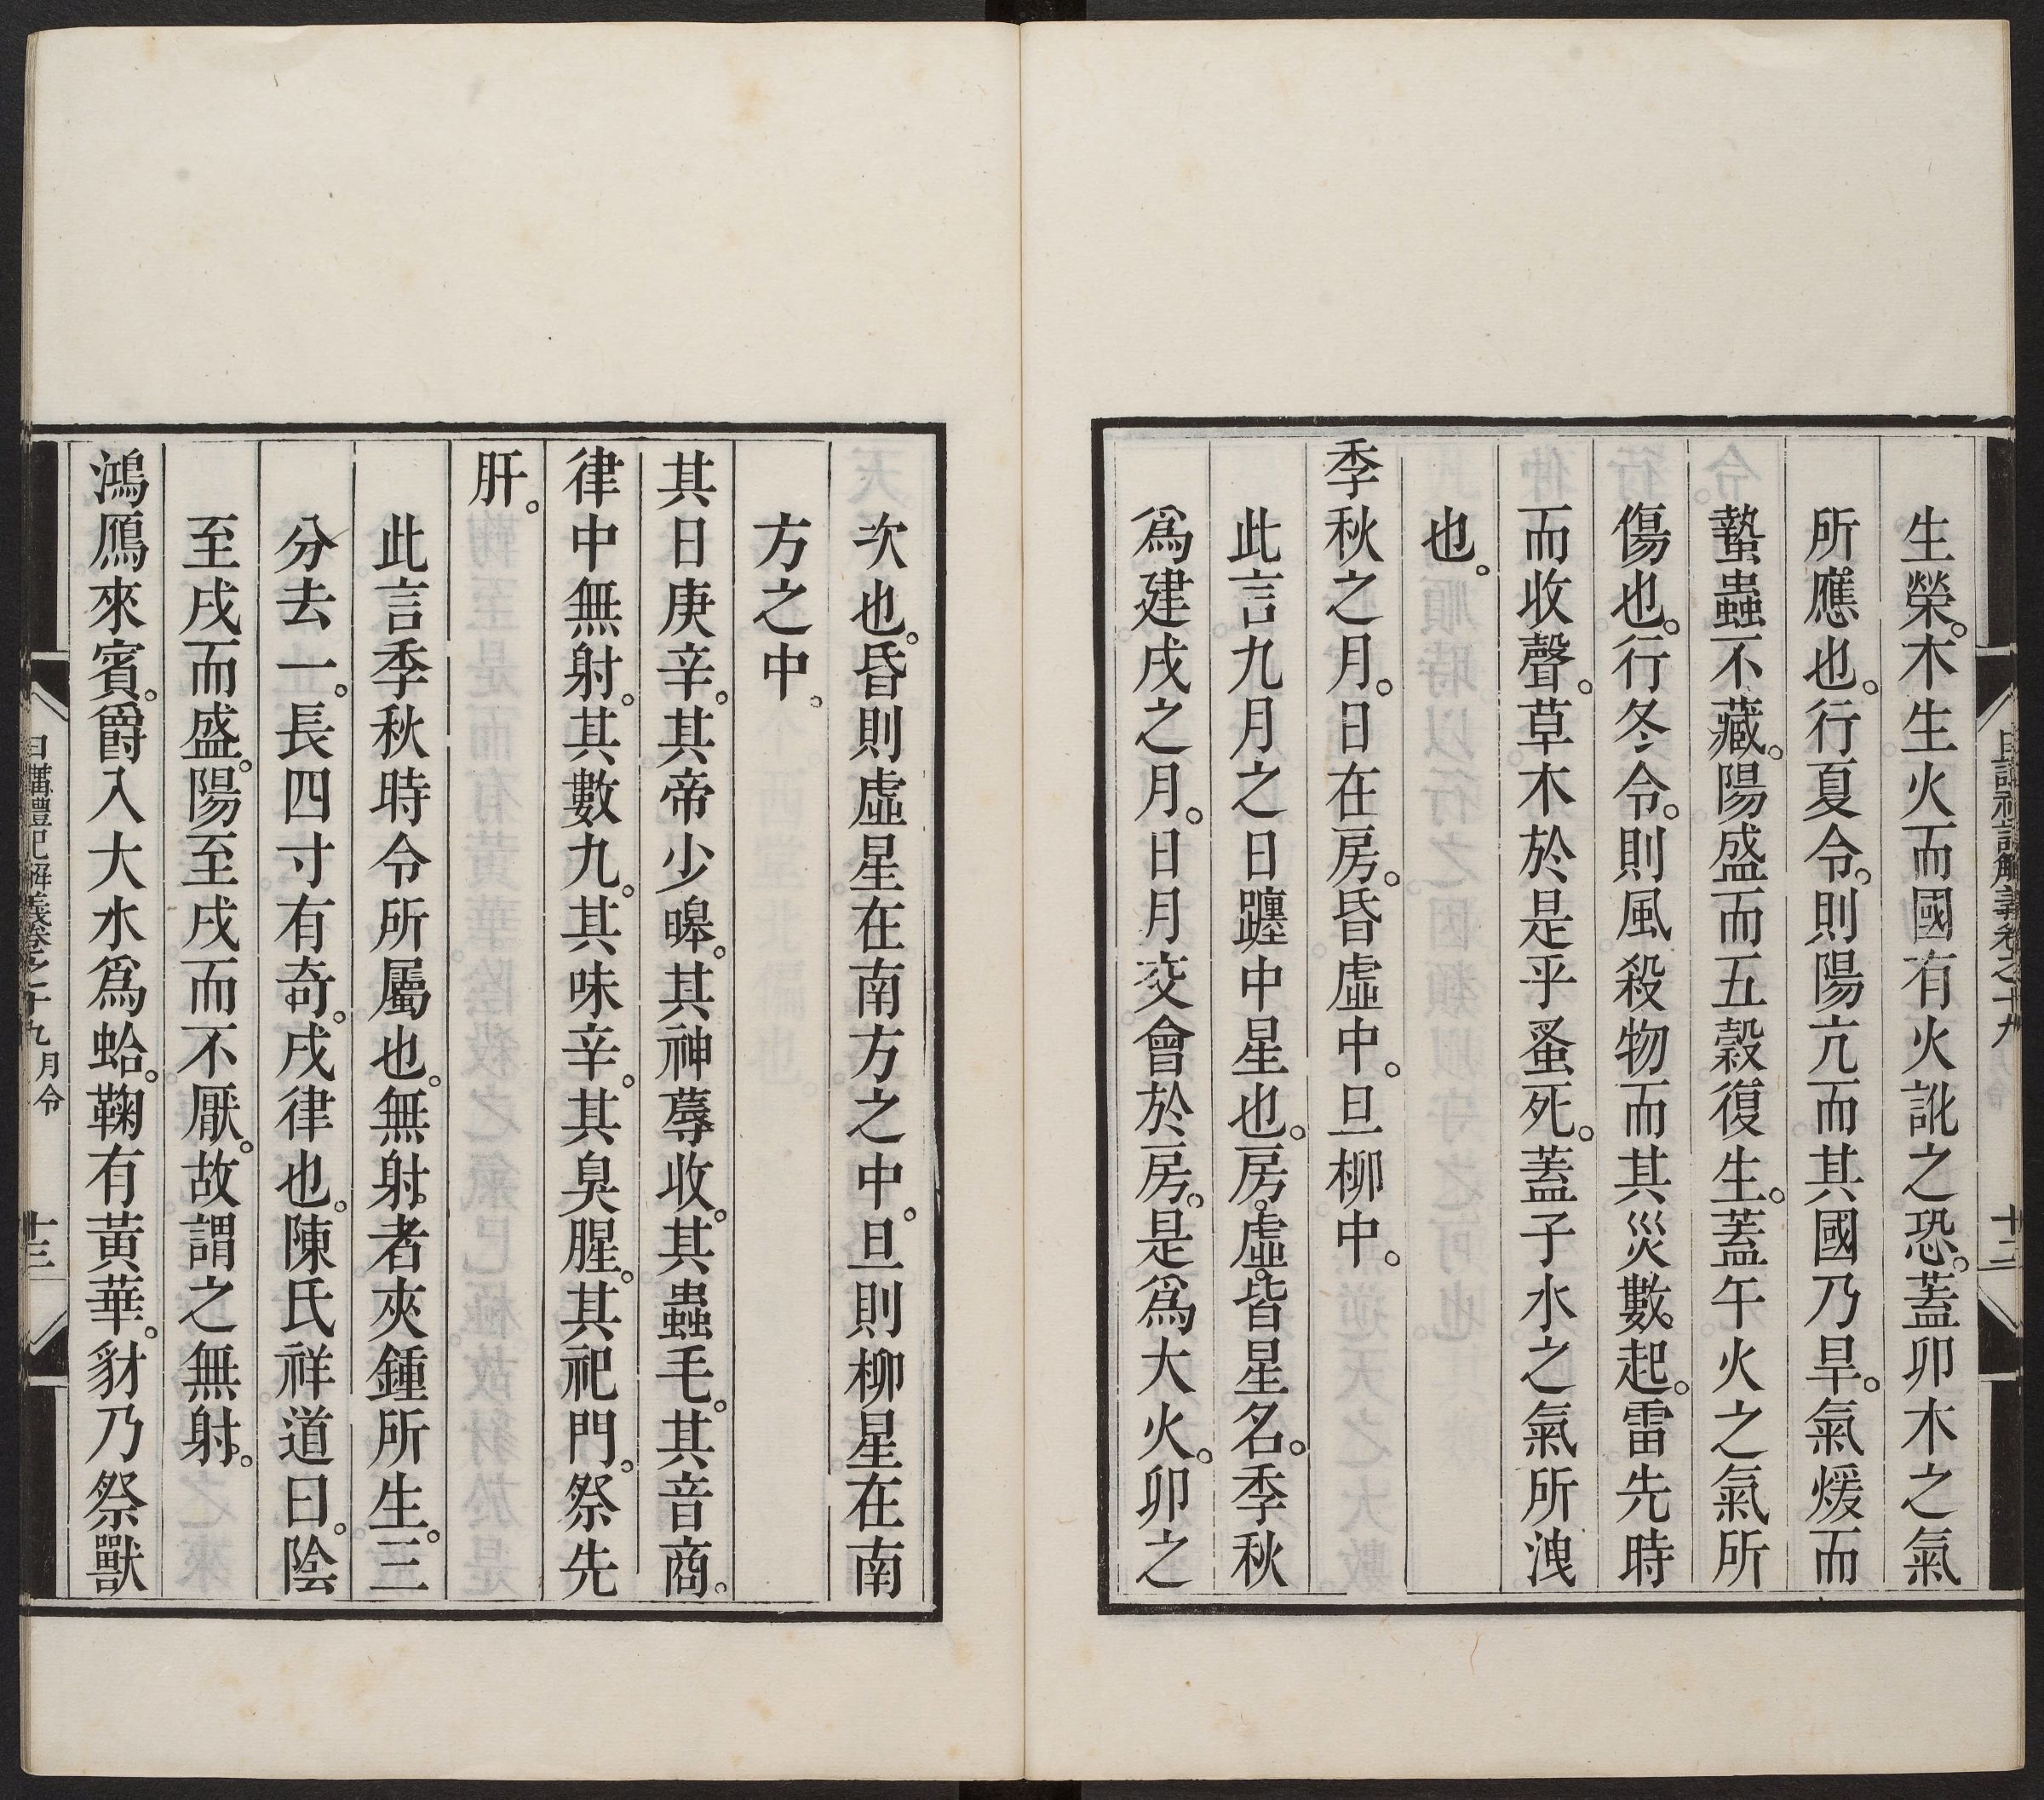 生榮。木生火而國有火訛之恐。蓋卯木之氣
所應也。行夏令。則陽亢而其國乃旱。氣煖而
蟄蟲不藏。陽盛而五穀復生。蓋午火之氣所
傷也。行冬令。則風殺物而其災數起。雷先時
而收聲。草木於是乎蚤死。蓋子水之氣所洩
也。
季秋之月。日在房。昏虛中。旦柳中。
此言九月之日躔中星也。房。虛。皆星名。季秋
爲建戌之月。日月交會於房。是爲大火。卯之
次也。昏則虛星在南方之中。旦則柳星在南
方之中。
其日庚辛。其帝少皞。其神蓐收。其蟲毛。其音商。
律中無射。其數九。其味辛。其臭腥。其祀門。祭先
肝。
此言季秋時令所屬也。無射者夾鍾所生。三
分去一。長四寸有奇。戌律也。陳氏祥道曰。陰
至戌而盛。陽至戌而不厭。故謂之無射。
鴻鴈來賓。爵入大水爲蛤。鞠有黃華。豺乃祭獸
日講禮記解義卷之十九 月令
十三